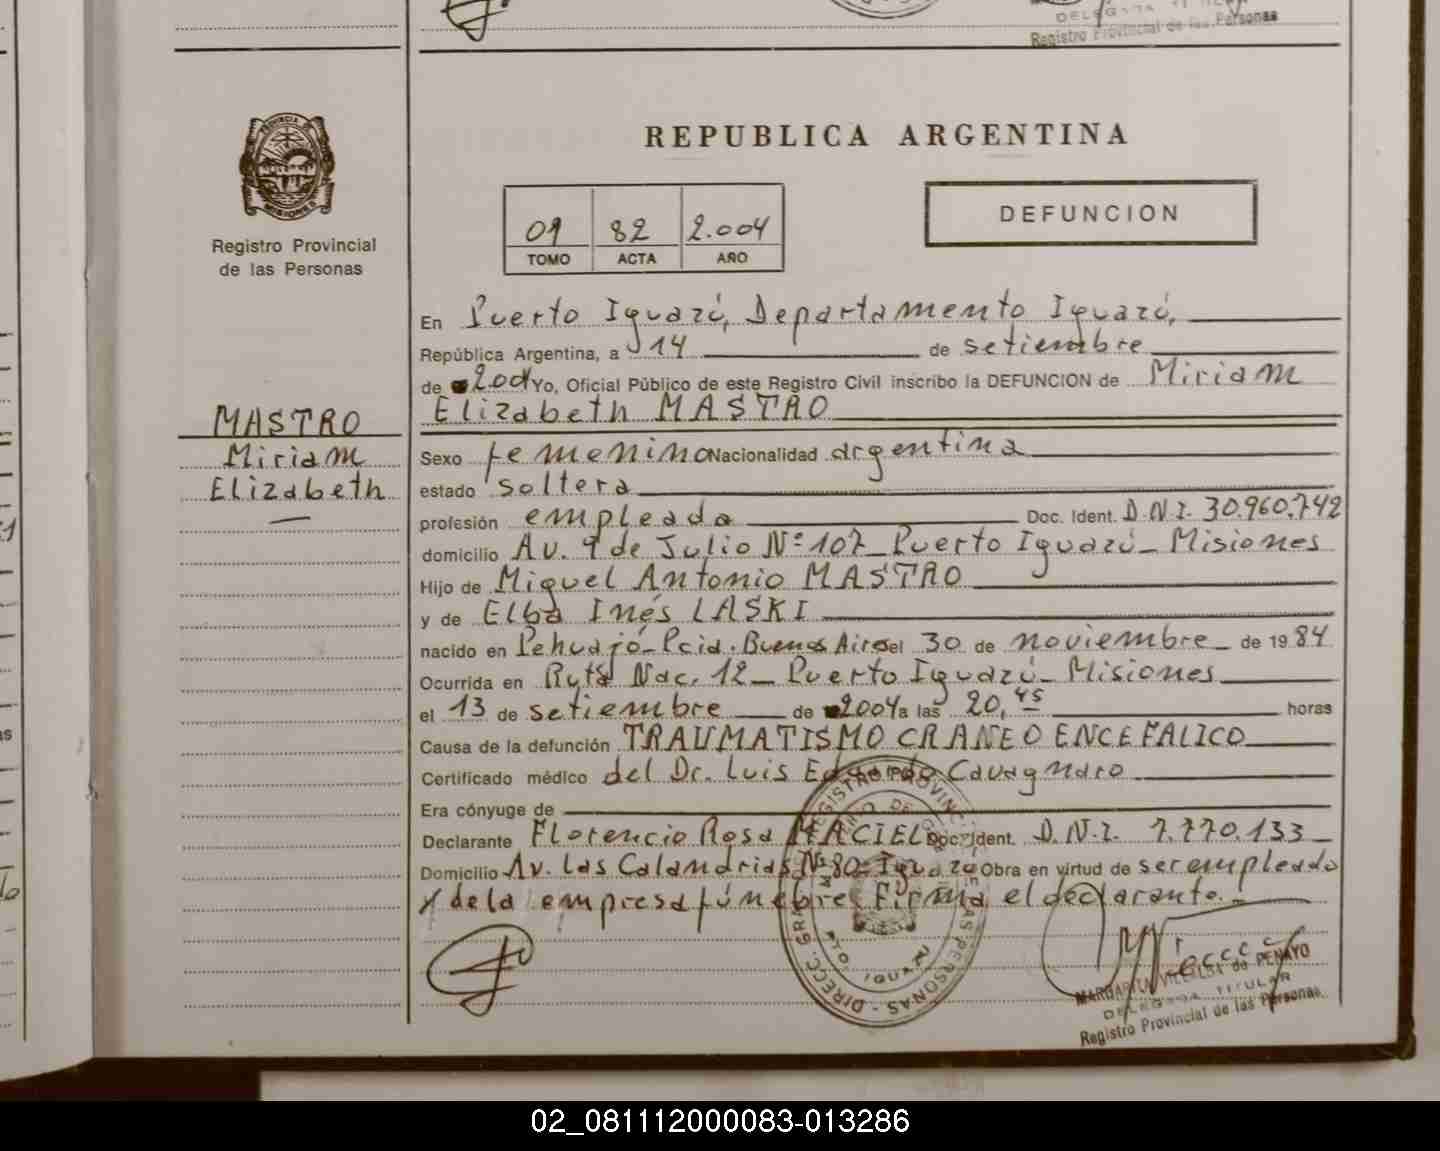 DELEGADA TITULAR
Registro Provincial de las Personas
PROVINCIA DE
MISIONES
Registro Provincial
de las Personas
REPUBLICA ARGENTINA
01 82 2.004
TOMO ACTA AÑO
DEFUNCION
En Puerto Iguazú, Departamento Iguazú,
República Argentina, a 14 de setiembre
de 2004 Yo, Oficial Público de este Registro Civil inscribo la DEFUNCION de Miriam
Elizabeth MASTRO
MASTRO
Miriam
Elizabeth
Sexo femenino Nacionalidad argentina
estado soltera
profesión empleada Doc. Ident. D.N.I. 30.960.742
domicilio Av. 9 de Julio Nº 107_ Puerto Iguazú_ Misiones
Hijo de Miguel Antonio MASTRO
y de Elba Inés LASKI
nacido en Pehuajó_ Pcia. Buenos Aires el 30 de noviembre_ de 1984
Ocurrida en Ruta Nac. 12_ Puerto Iguazú_ Misiones
el 13 de setiembre de 2004 a las 20,45 horas
Causa de la defunción TRAUMATISMO CRANEO ENCEFALICO
Certificado médico del Dr. Luis Eduardo Cavagnaro
Era cónyuge de
Declarante Florencio Rosa MACIEL Doc. Ident. D.N.I. 7.770.133_
Domicilio Av. Las Calandrias Nº 80_ Iguazú Obra en virtud de ser empleado
de la empresa fúnebre. Firma el declarante._
DIRECC. GRAL. REGISTRO PROVINC. DE LAS PERSONAS
PTO. IGUAZU
DELEGADA TITULAR
Registro Provincial de las Personas
02_081112000083-013286